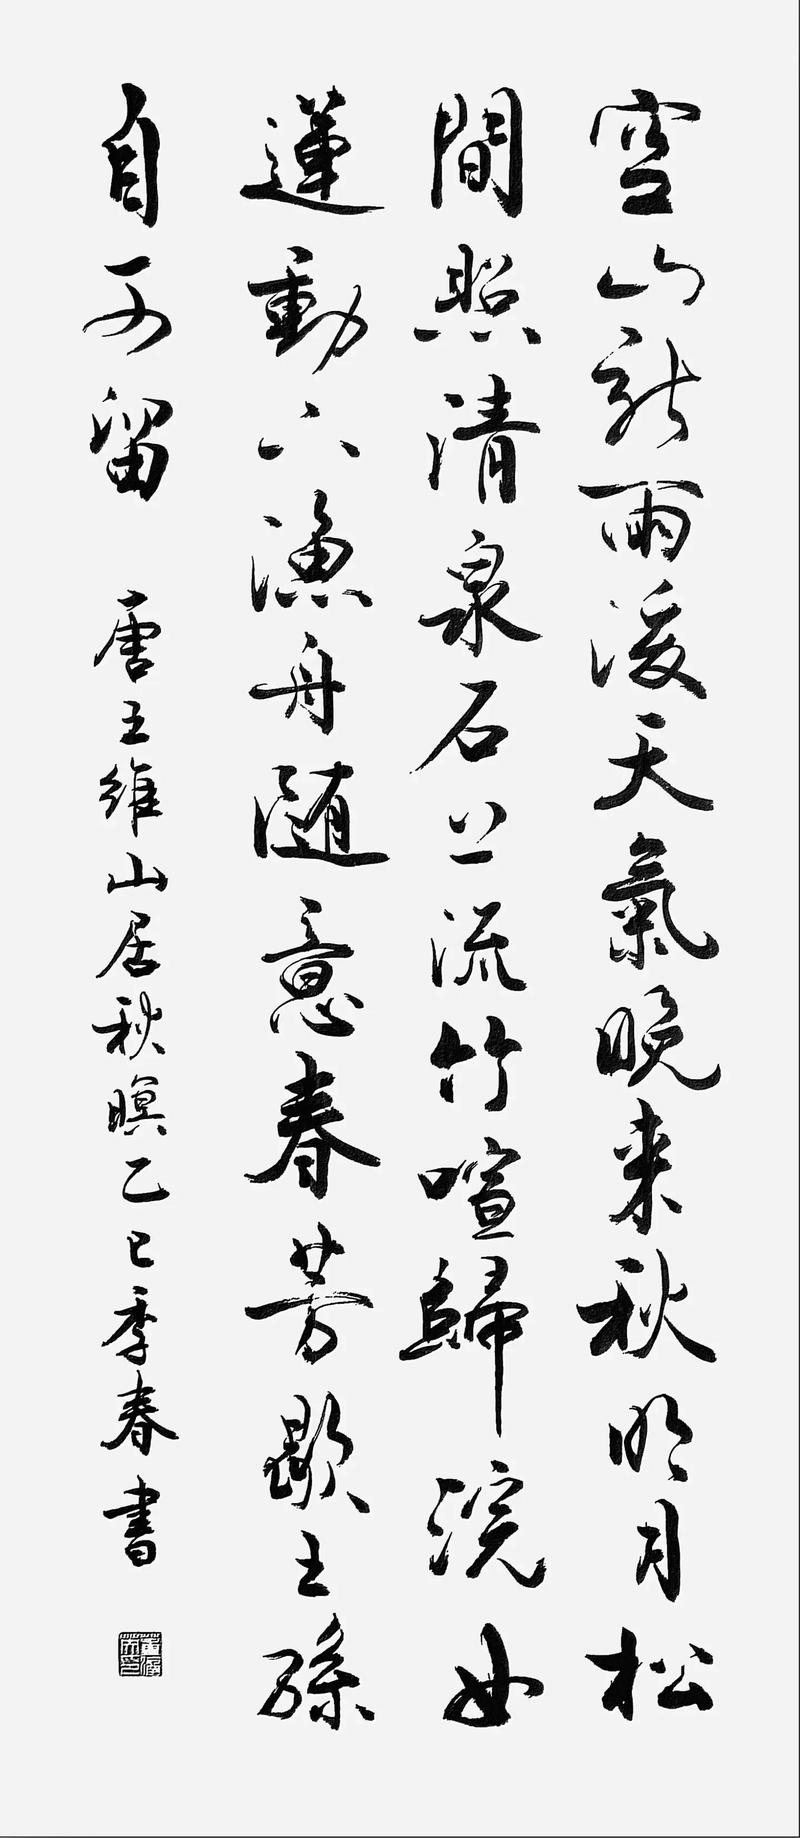 空山新雨後天氣晚来秋明月松
間照清泉石上流竹喧歸浣女
蓮動下漁舟随意春芳歇王孫
自可留 唐王維山居秋暝乙巳季春書